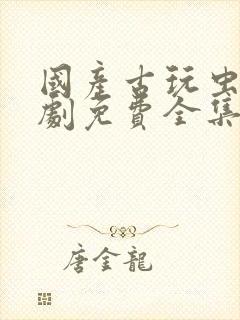 國產古玩虫
劇免費全集
唐金龍